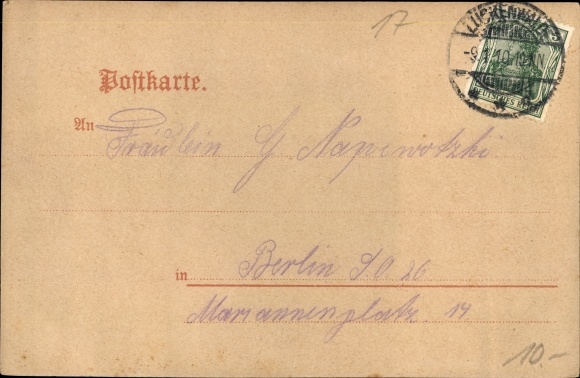 17
LUCKENWALDE
-9.1.10.10-11N
DEUTSCHES REICH
Postkarte.
An Fräulein G Napiwotzki
in Berlin S.O. 26
Mariannenplatz. 14
10.-